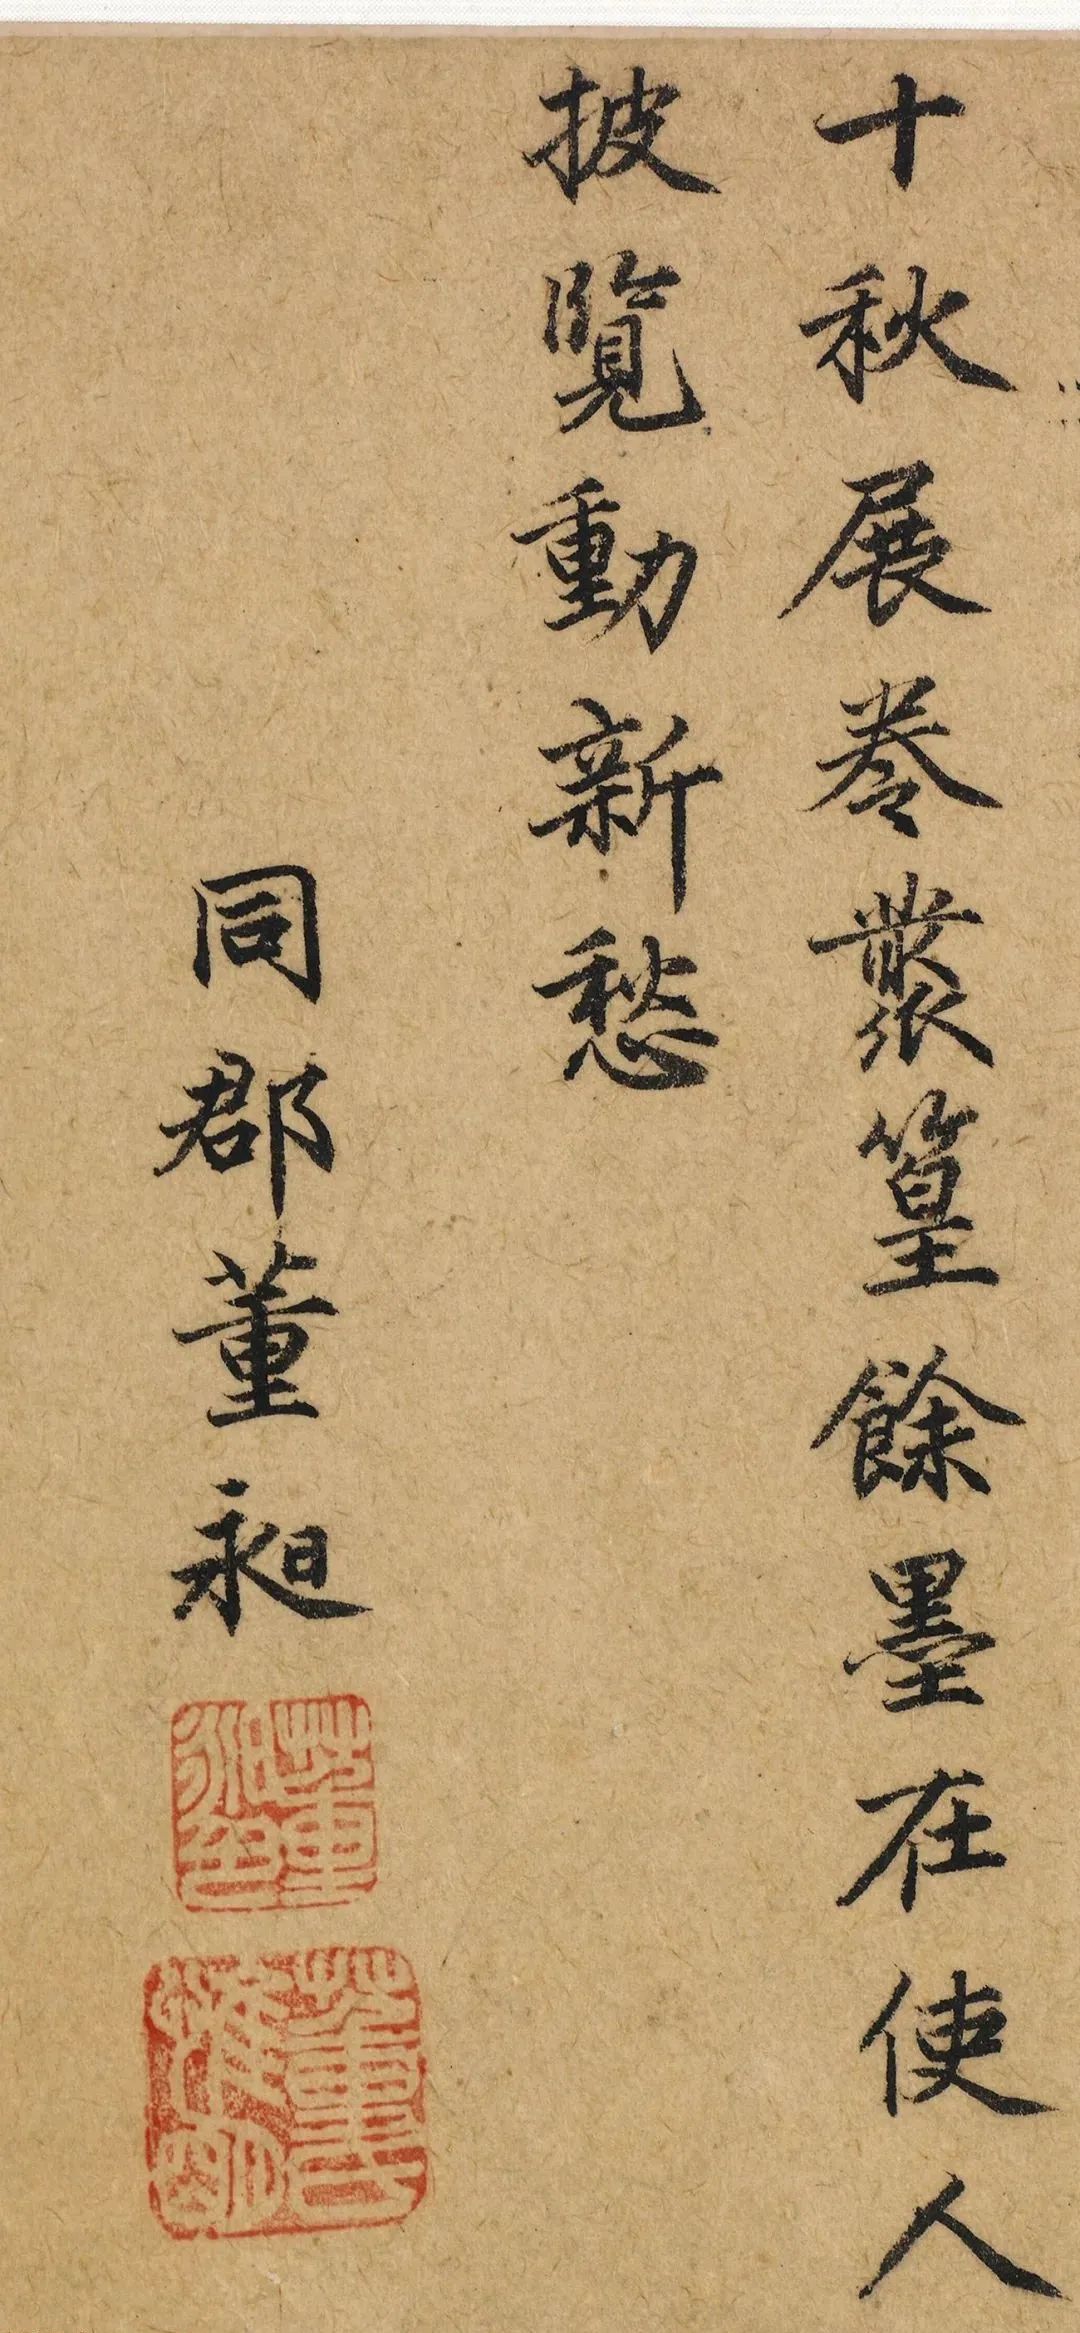 十秋展卷叢篁餘墨在使人
披覽動新愁
同郡董昶